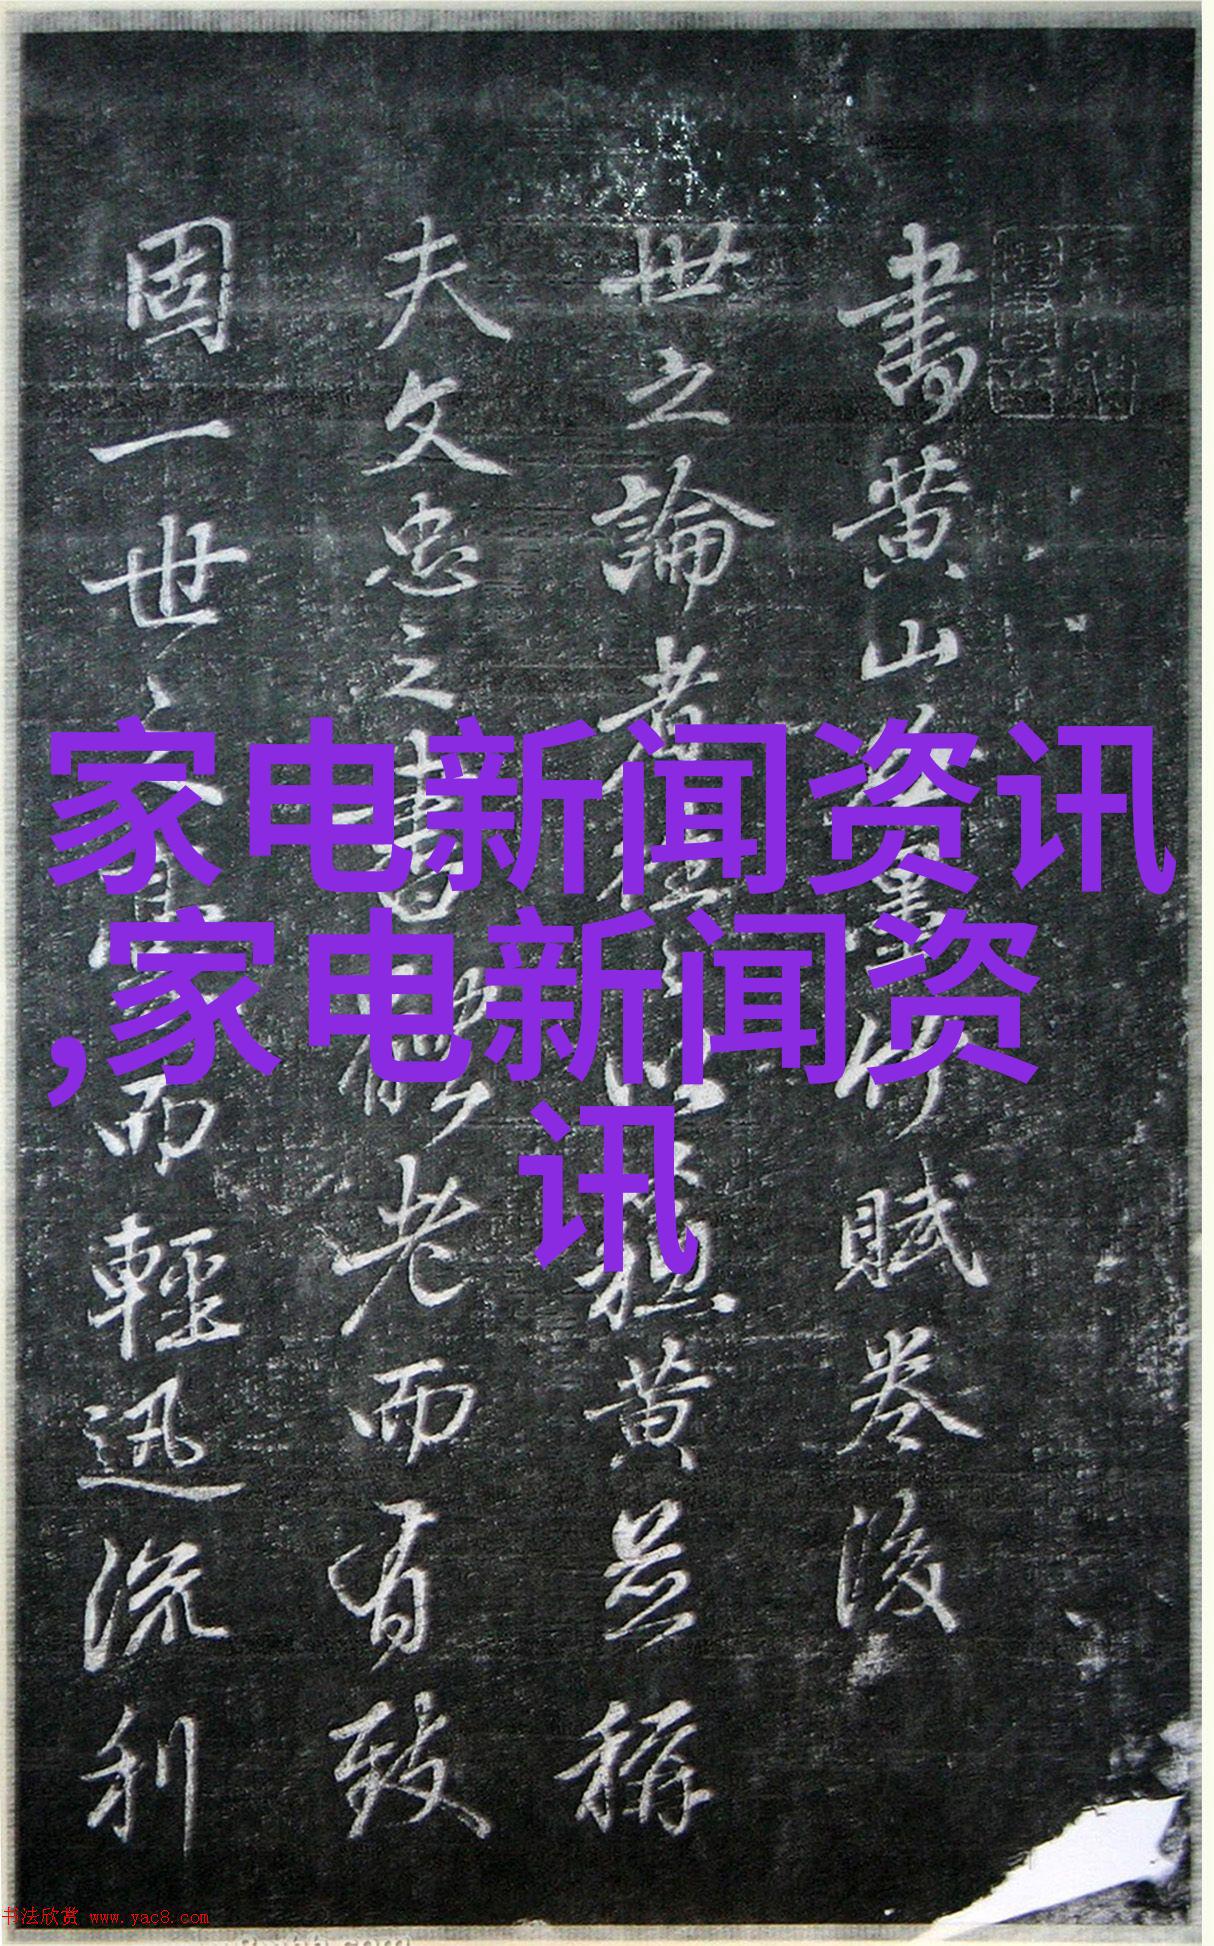 書黄山谷墨竹賦卷後
世之論者往以蘇黄並稱
夫文忠之書體老而有致
固一世之而輕迅流利
家电新闻资讯
,家电新闻资
讯
书法欣赏 www.yac8.com